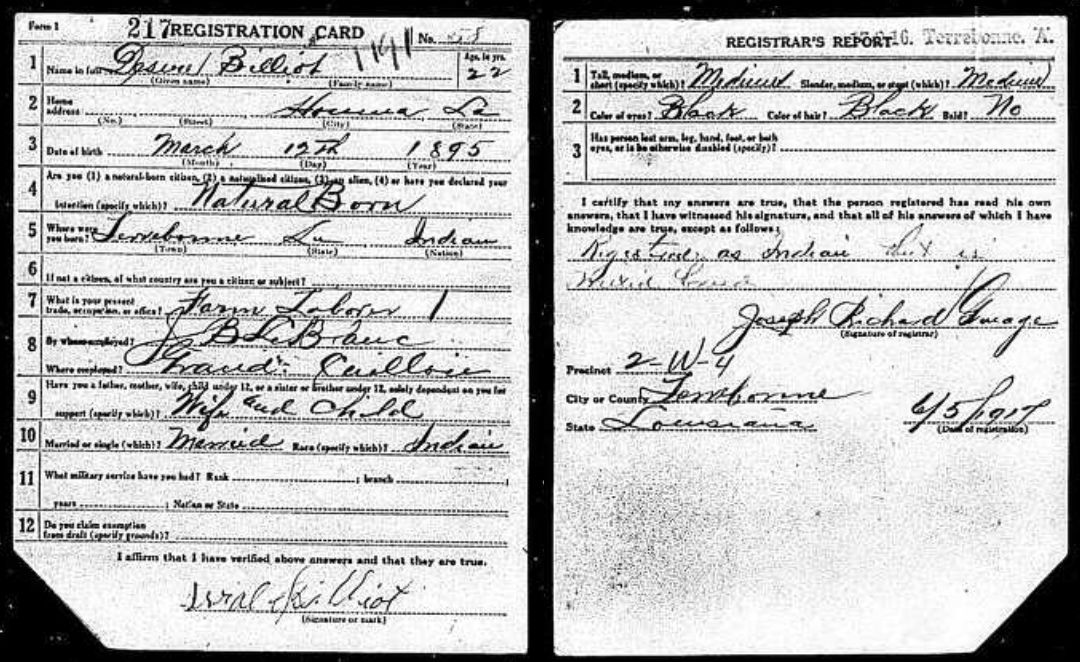 Form 1
217 REGISTRATION CARD 1141 No.
1 Name in full Billiot Age, in yrs. 22
(Given name) (Family name)
2 Home address Houma La
(No.) (Street) (City) (State)
3 Date of birth March 12th 1895
(Month) (Day) (Year)
4 Are you (1) a natural-born citizen, (2) a naturalized citizen, (3) an alien, (4) or have you declared your
intention (specify which)? Natural Born
5 Where were you born? Terrebonne La Indian
(Town) (State) (Nation)
6 If not a citizen, of what country are you a citizen or subject?
7 What is your present trade, occupation, or office? Farm Laborer 1
8 By whom employed? J B LeBlanc
Where employed? Grand Caillou
9 Have you a father, mother, wife, child under 12, or a sister or brother under 12, solely dependent on you for
support (specify which)? Wife and Child
10 Married or single (which)? Married Race (specify which)? Indian
11 What military service have you had? Rank ; branch ;
years ; Nation or State
12 Do you claim exemption from draft (specify grounds)?
I affirm that I have verified above answers and that they are true.
(Signature or mark)
REGISTRAR'S REPORT 16. Terrebonne. A.
1 Tall, medium, or short (specify which)? Medium Slender, medium, or stout (which)? Medium
2 Color of eyes? Black Color of hair? Black Bald? No
3 Has person lost arm, leg, hand, foot, or both
eyes, or is he otherwise disabled (specify)?
I certify that my answers are true, that the person registered has read his own
answers, that I have witnessed his signature, and that all of his answers of which I have
knowledge are true, except as follows:
as Indian but is
Joseph Richard
(Signature of registrar)
Precinct 2-W-4
City or County Terrebonne
State Louisiana 6/5/1917
(Date of registration)